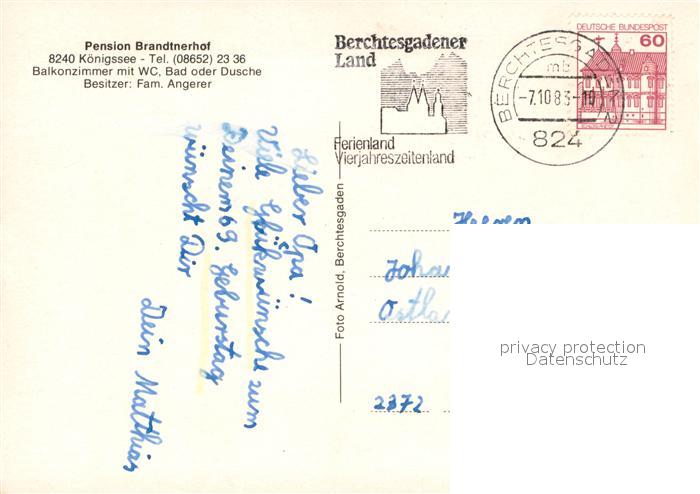 Pension Brandtnerhof
8240 Königssee - Tel. (08652) 23 36
Balkonzimmer mit WC, Bad oder Dusche
Besitzer: Fam. Angerer
Berchtesgadener
Land
Ferienland
Vierjahreszeitenland
BERCHTESGADEN
mb
-7.10.83-10
824
DEUTSCHE BUNDESPOST
60
Lieber Opa!
Viele Glükwünsche zum
Deinem 69. Geburtstag
wünscht Dir
Dein Matthias
Foto Arnold, Berchtesgaden
Herrn
Joha
Ostla
2372
privacy protection
Datenschutz